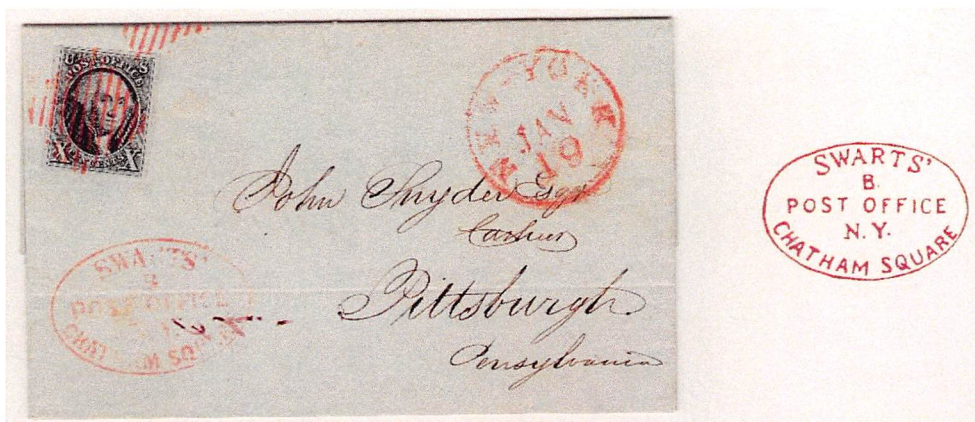 U S
POST OFFICE
X CENTS X
NEW-YORK
JAN
10
John Snyder Esqr
Cashier
Pittsburgh
Pensylvania
SWARTS'
B
POST OFFICE
CHATHAM SQUARE
SWARTS'
B.
POST OFFICE
N.Y.
CHATHAM SQUARE